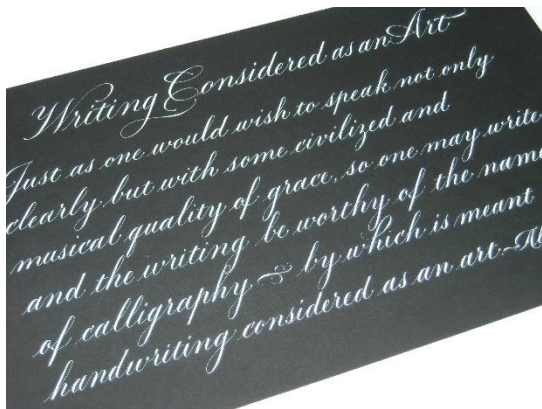 Writing Considered as an Art
Just as one would wish to speak not only
clearly but with some civilized and
musical quality of grace, so one may write
and the writing be worthy of the name
of calligraphy ~ by which is meant
handwriting considered as an art.~